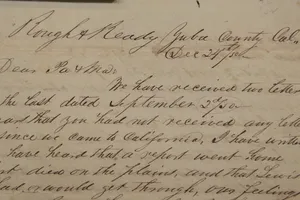 Rough & Ready Yuba County Cal.
Dec 24th
Dear Pa & Ma
We have received two letters
the last dated September
that you had not received any letter
since we came to California, I have written
have heard that a report went home
died on the plains, and that Lewis
had, or would get through, our feelings